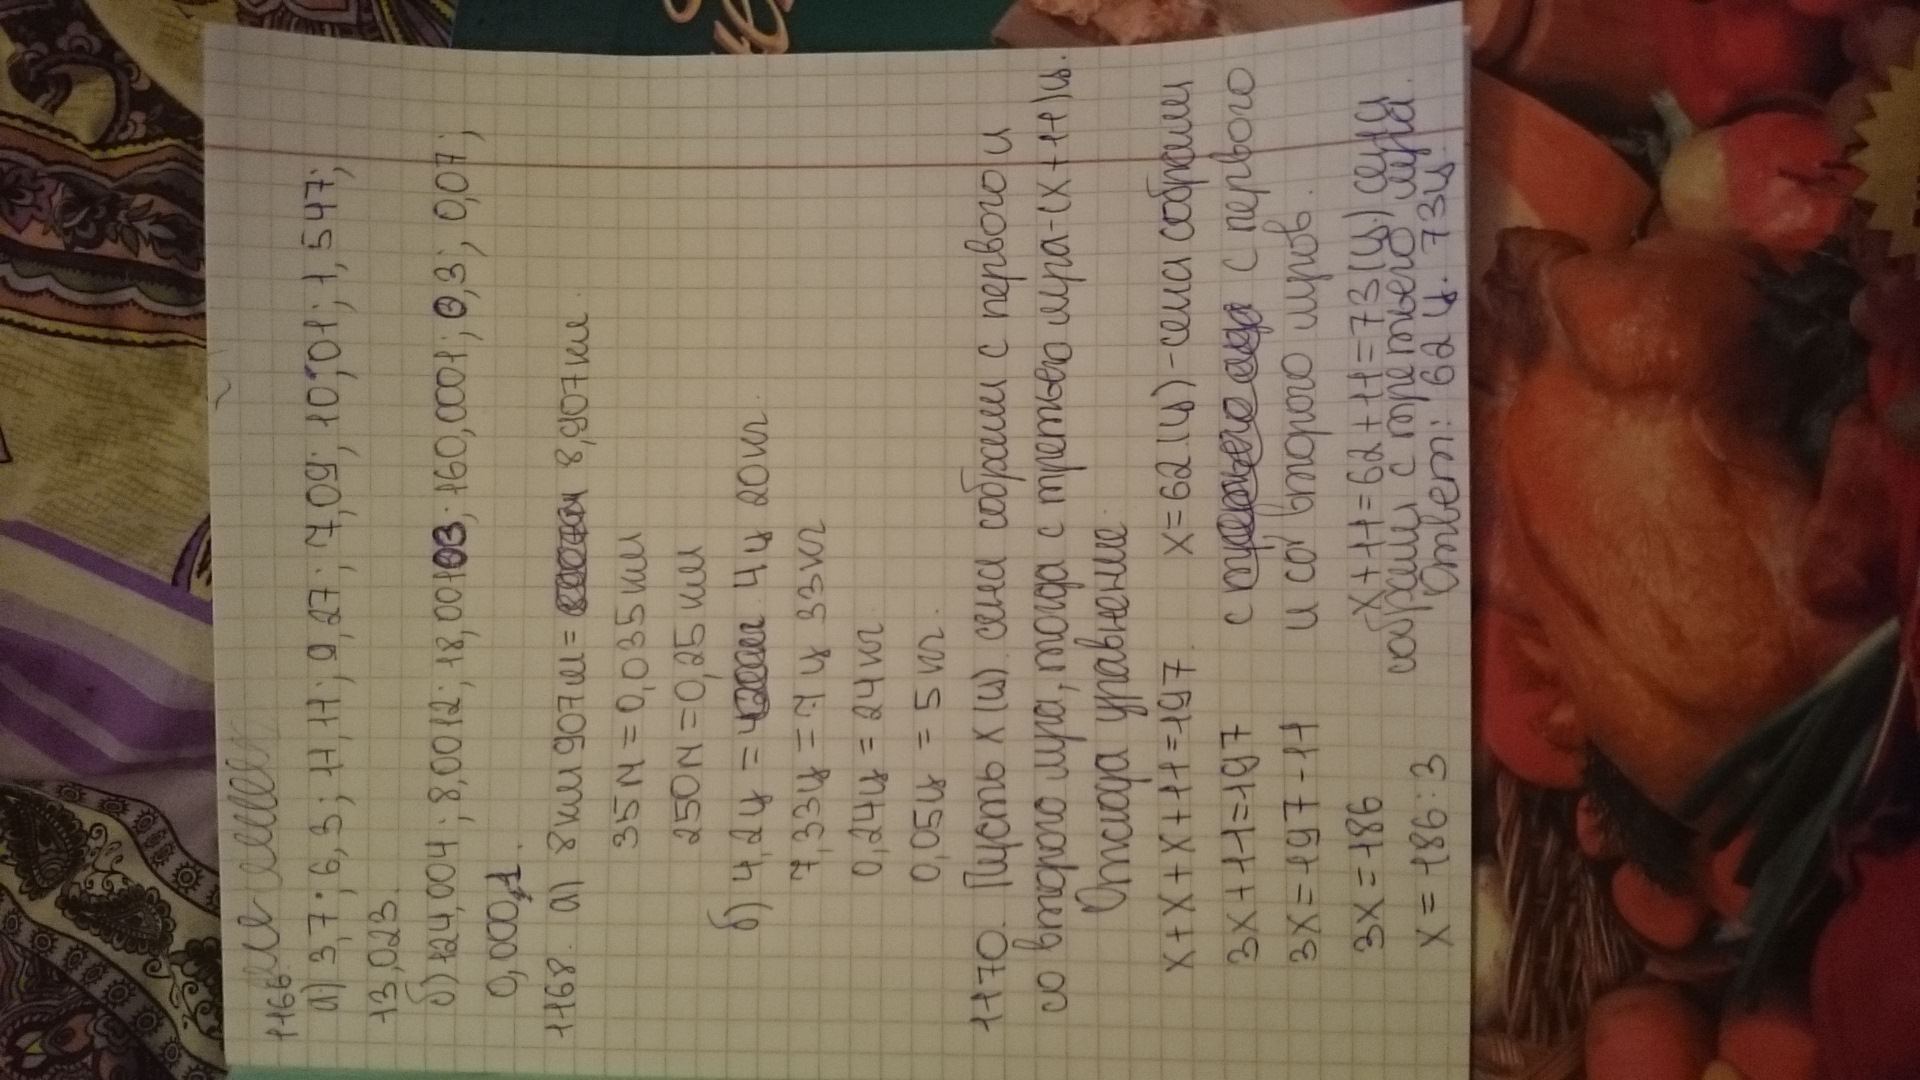 1166
а) 3,7; 6,3; 11,11; 9,27; 7,09; 10,01; 1,547;
13,023.
б) 124,004; 8,0012; 18,00103; 160,0001; 0,3; 0,07;
0,0001.
1168. а) 8км 907м = 8,907км.
35м = 0,035км
250м = 0,25км
б) 4,2ц = 4ц 20кг.
7,33ц = 7ц 33кг
0,24ц = 24кг.
0,05ц = 5кг.
1170. Пусть х (ц). сена собрали с первого и
со второго луга, тогда с третьего луга-(х+11)ц.
Отсюда уравнение:
х+х+х+11=197.
3х+11=197
3х=197-11
3х=186
х=186:3
х=62(ц)-сена собрали
с первого
и со второго лугов.
х+11=62+11=73(ц) сена
собрали с третьего луга.
Ответ: 62ц. 73ц.